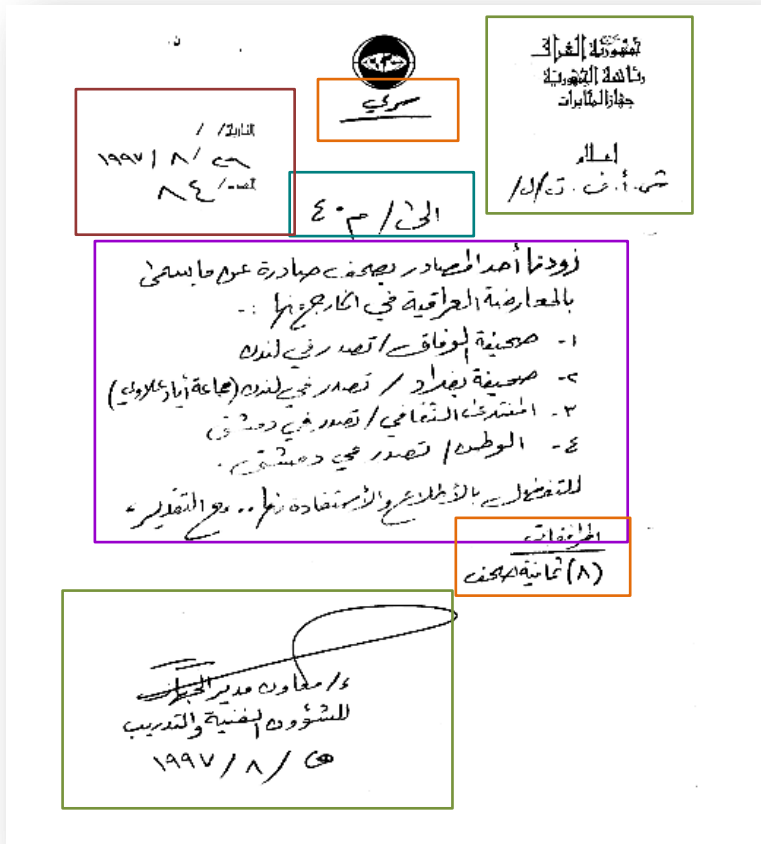 جمهورية العراق
رئاسة الجمهورية
جهاز المخابرات
اعلام
ش.أ.ف.ت/ل/
سري
التاريخ/ /
/ ٨ / ١٩٩٧
العدد/ ٨٤
الى / م ٤٠
زودنا أحد المصادر بصحف صادرة عن ما يسمى
بالمعارضة العراقية في الخارج منها :-
١- صحيفة الوفاق / تصدر في لندن
٢- صحيفة بغداد / تصدر في لندن (جماعة أياد علاوي)
٣- المنتدى الثقافي / تصدر في دمشق
٤- الوطن / تصدر في دمشق .
للتفضل بالأطلاع والأستفادة منها .. مع التقدير
المرافقات
(٨) ثمانية صحف
ع/ معاون مدير الجهاز
للشؤون الفنية والتدريب
/ ٨ / ١٩٩٧